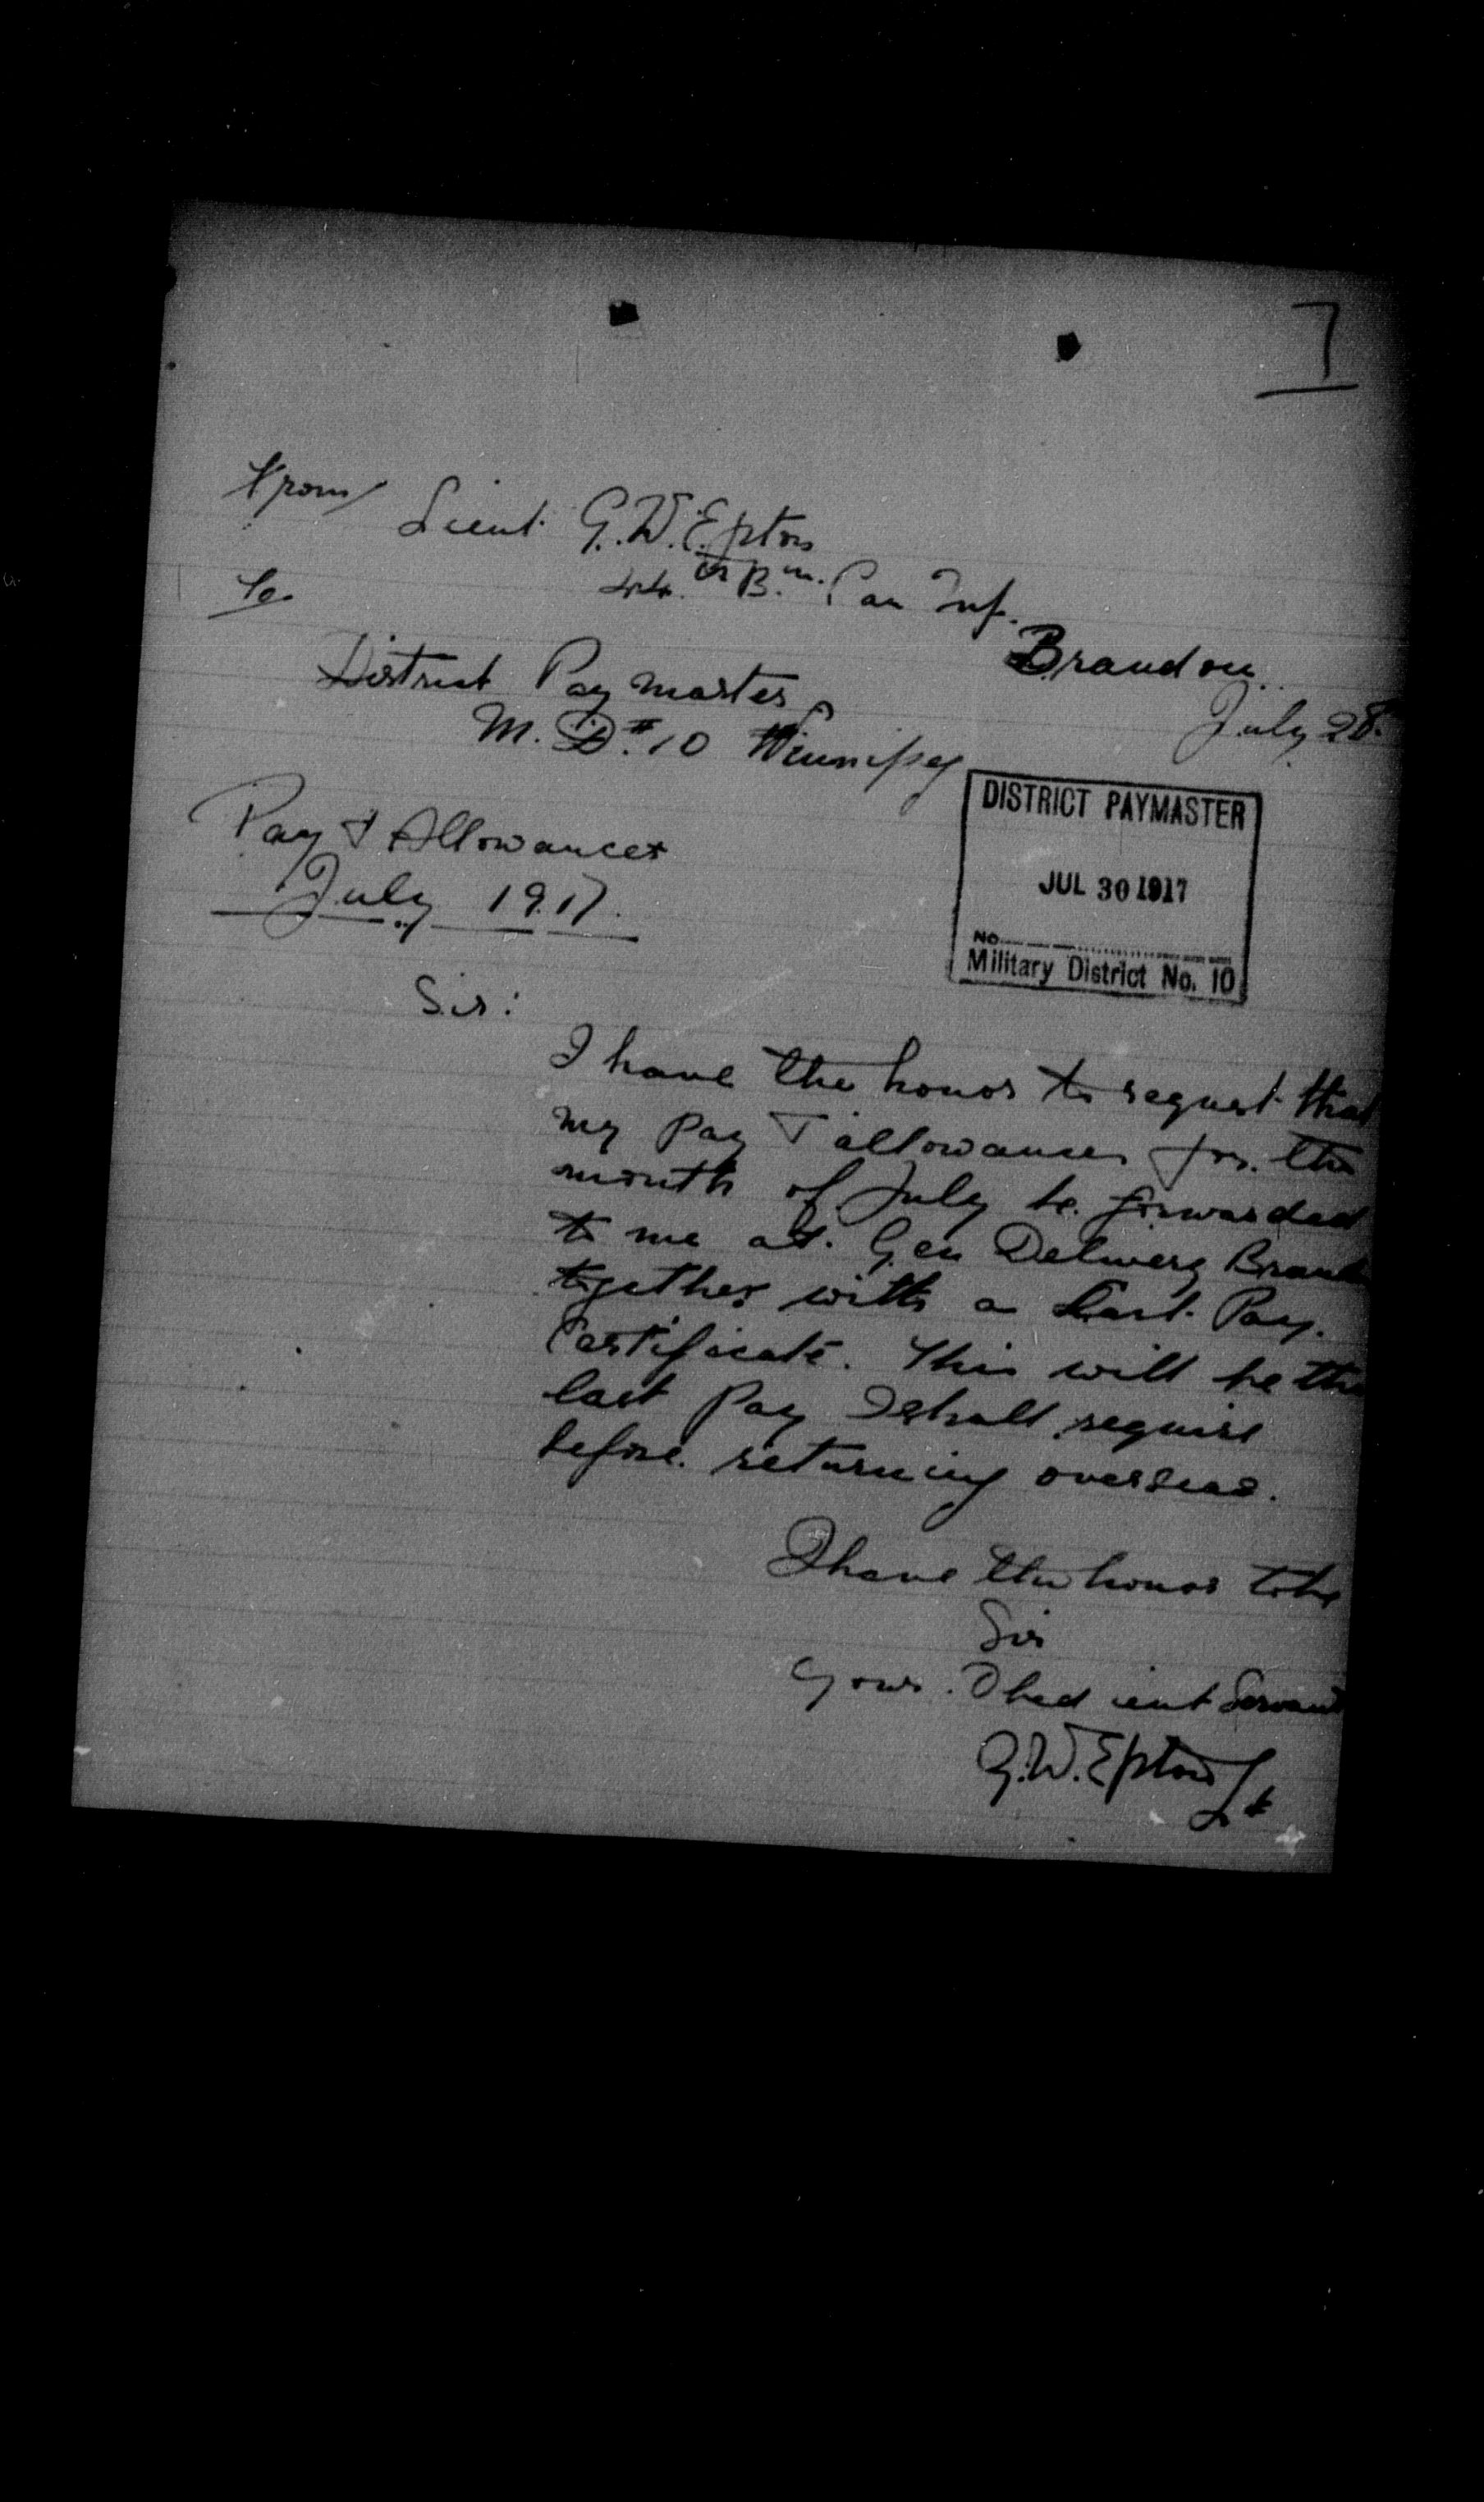 7
From
Lieut. G.W. Epton
44th Bn. Can Inf.
To.
Brandon
July 28.
District Paymaster
M.D. #10 Winnipeg
DISTRICT PAYMASTER
JUL 30 1917
NO
Military District No. 10
Pay & Allowances
July 1917.
Sir:
I have the honor to request that
my pay & allowances for the
month of July be forwarded
to me at Gen Delivery
together with a Last Pay.
Certificate. This will be the
last pay I shall require
before returning overseas.
I have the honor to be
Sir
Your Obedient Servant
G.W. Epton Lt